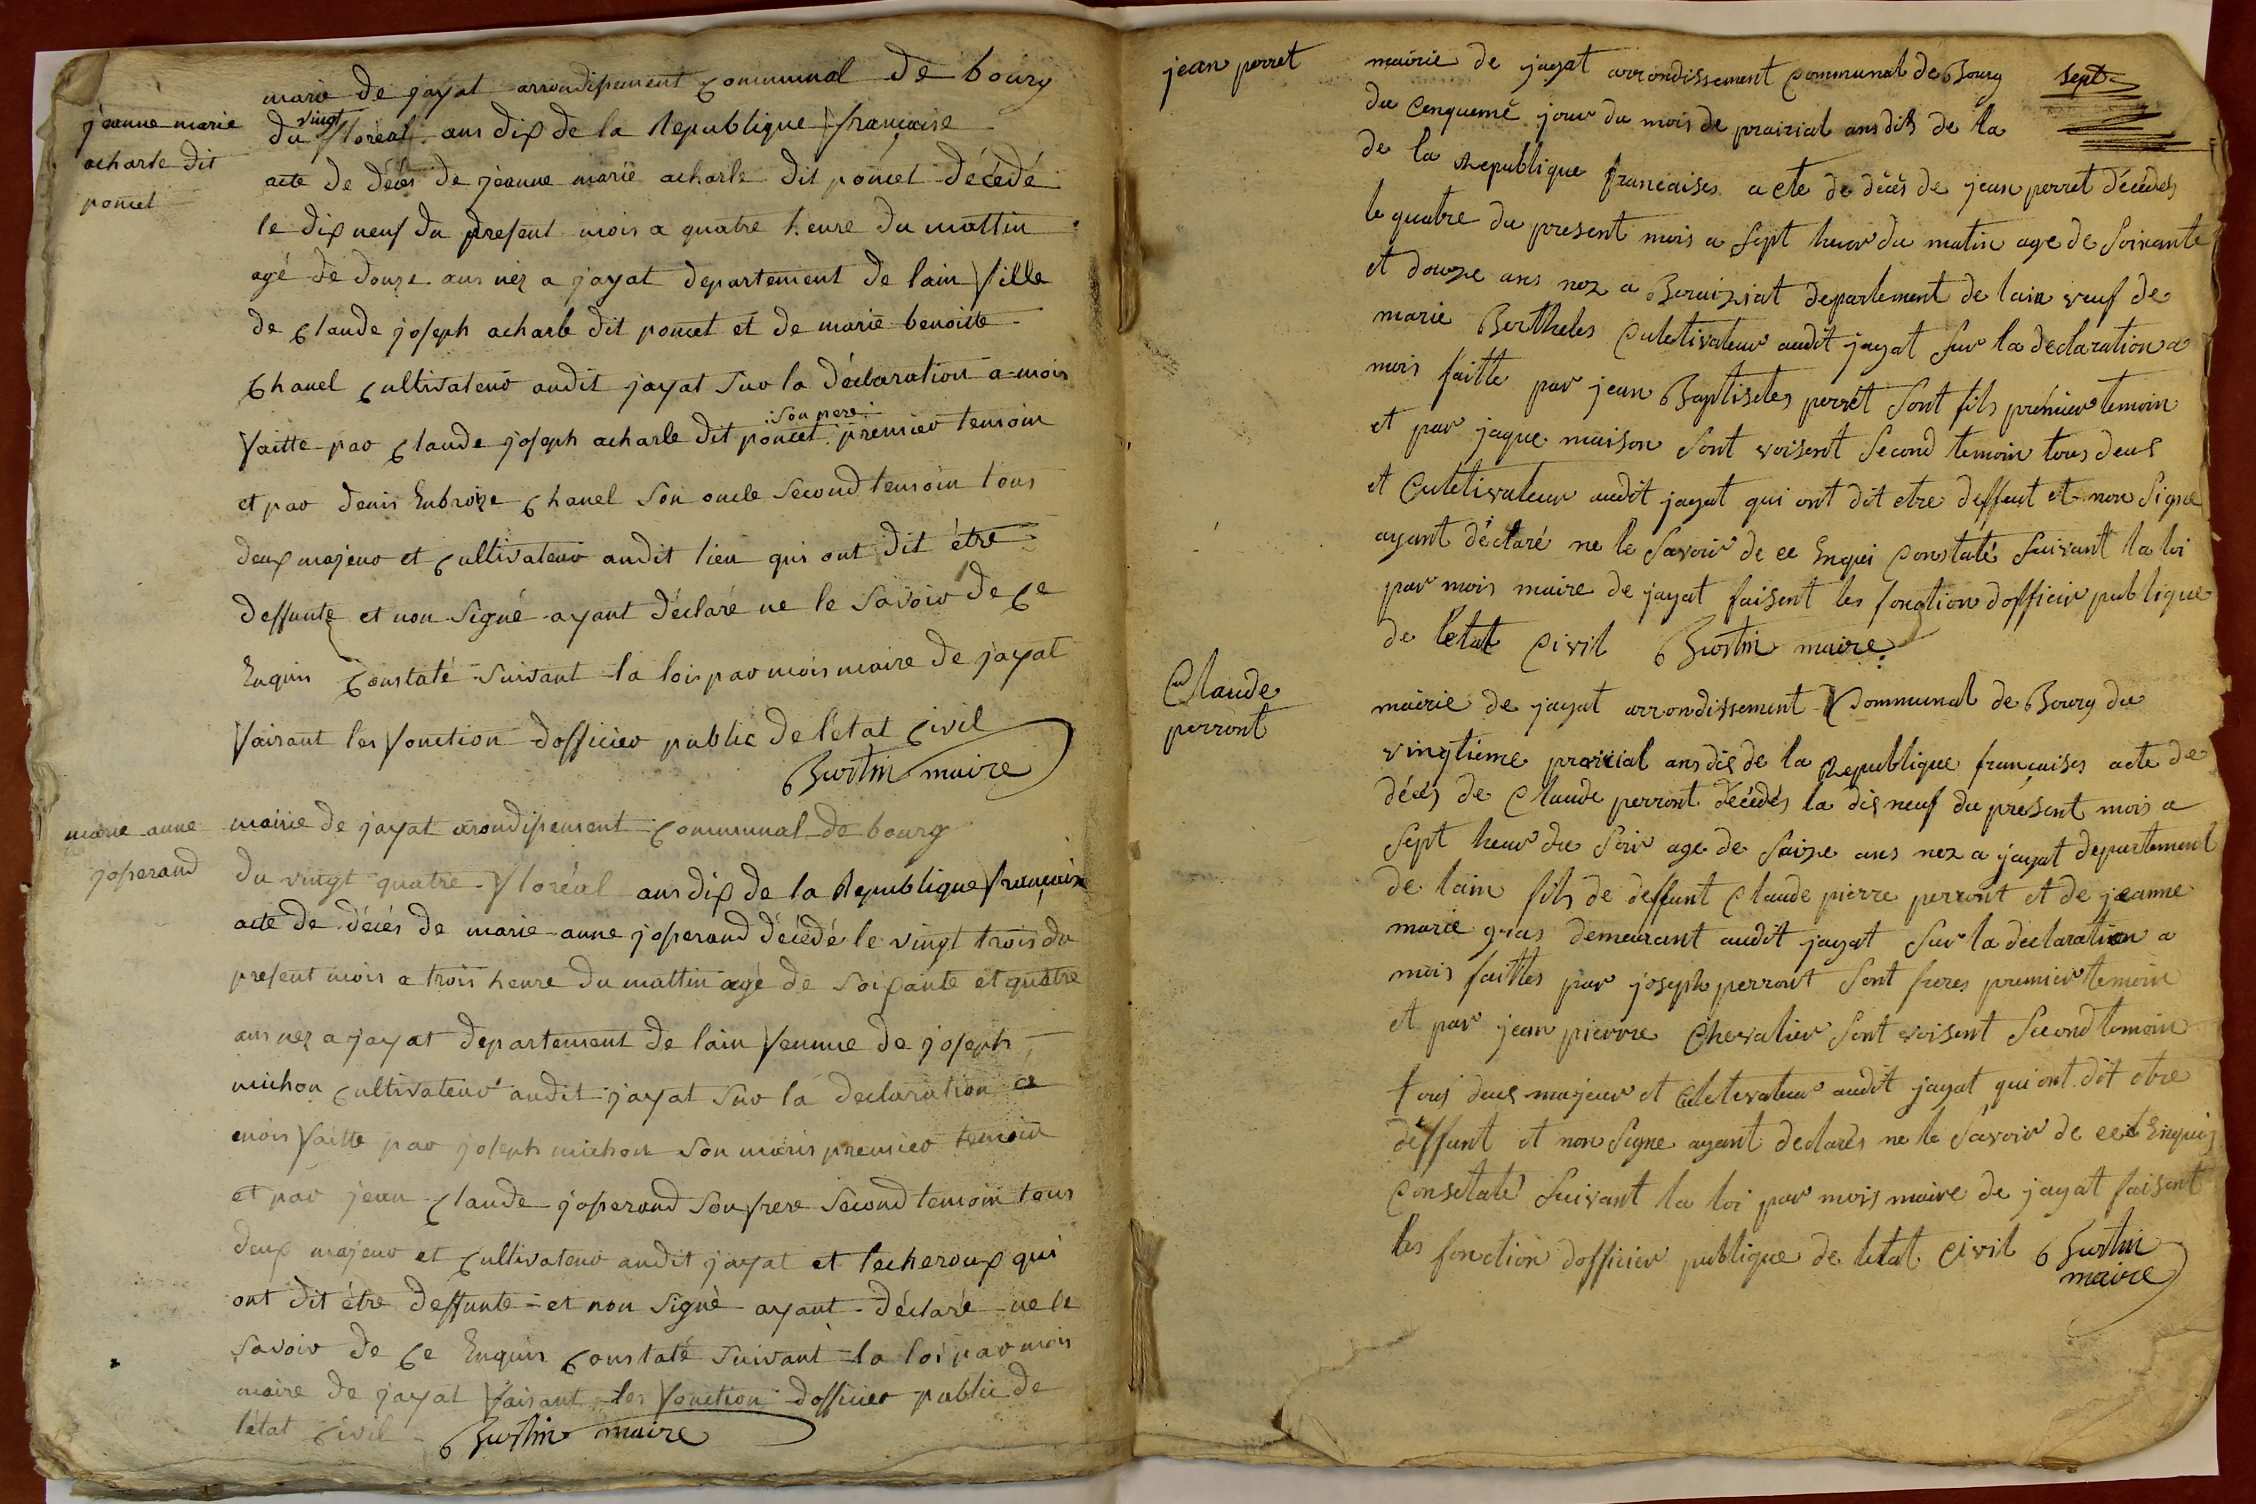 jeanne marie
acharle dit
poncet
marie de jayat arrondissement communal de bourg
du vingt floréal ans dix de la République française
acte de décès de jeanne marie acharle dit poncet décédé
le dix neuf du present mois a quatre heure du mattin
agé de douze ans nez a jayat departement de lain fille
de claude joseph acharle dit poncet et de marie benoitte
chanel cultivateur audit jayat sur la déclaration a mois
faitte par claude joseph acharle dit poncet son pere premier temoin
et par denis Enbroize chanel son oncle second temoin tous
deux majeur et cultivateur audit lieu qui ont dit étre
deffunte et non signé ayant déclaré ne le savoir de ce
Enquis constaté suivant la loi par mois maire de jayat
faisant les fonction dofficier public de létat civil
Burtin maire
marie anne
josserand
mairie de jayat arondissement communal de bourg
du vingt quatre floréal ans dix de la République française
acte de décés de marie anne josserand décédé le vingt trois du
present mois a trois heure du mattin agé de soixante et quatre
ans nez a jayat departement de lain femme de joseph
michon cultivateur audit jayat sur la declaration a
mois faitte par joseph michon son maris premier temoin
et par jean claude josserand son frere second temoin tous
deux majeur et cultivateur audit jayat et lecheroux qui
ont dit étre deffunte et non signé ayant déclaré ne le
savoir de ce Enquis constaté suivant la loi par mois
maire de jayat faisant les fonction dofficier public de
létat civil Burtin maire
jean perret
mairie de jayat arrondissement communal de Bourg sept
du cenquemé jour du mois de prairial ans dix de la
de la Republique francaises acte de décès de jean perret décèdés
le quatre du present mois a sept heur du matin age de soixante
et douze ans nez a Beraiziat departement de lain veuf de
marie Berthelet culetivateur audit jayat sur la declaration a
mois faitte par jean Baptistes perret sont fils prémier temoin
et par jaque maison sont voisent second temoin tous deus
et culetivateur audit jayat qui ont dit etre deffunt et non signe
ayant déclaré ne le savoir de ce Enqui constaté suivant la loi
par mois maire de jayat faisent les fonction dofficier publique
de létat civil Burtin maire
Claude
perront
mairie de jayat arrondissement communal de Bourg du
vingtieme prairial ans dis de la Republique françaises acte de
décés de claude perront décédés la dis neuf du présent mois a
sept heur du soir age de saize ans nez a jayat departement
de lain fils de deffunt claude pierre perront et de jeanne
marie gras demeurant audit jayat sur la declaration a
mois faittes par joseph perront sont freres premier temoin
et par jean pierre chevalier sont voisent second temoin
tous deus majeur et culetevateur audit jayat qui ont dit etre
déffunt et non signe ayant declarés ne le savoir de ce Enquis
consetaté suivant la loi par mois maire de jayat faisent
les fonction dofficier publique de létat civil Burtin
maire